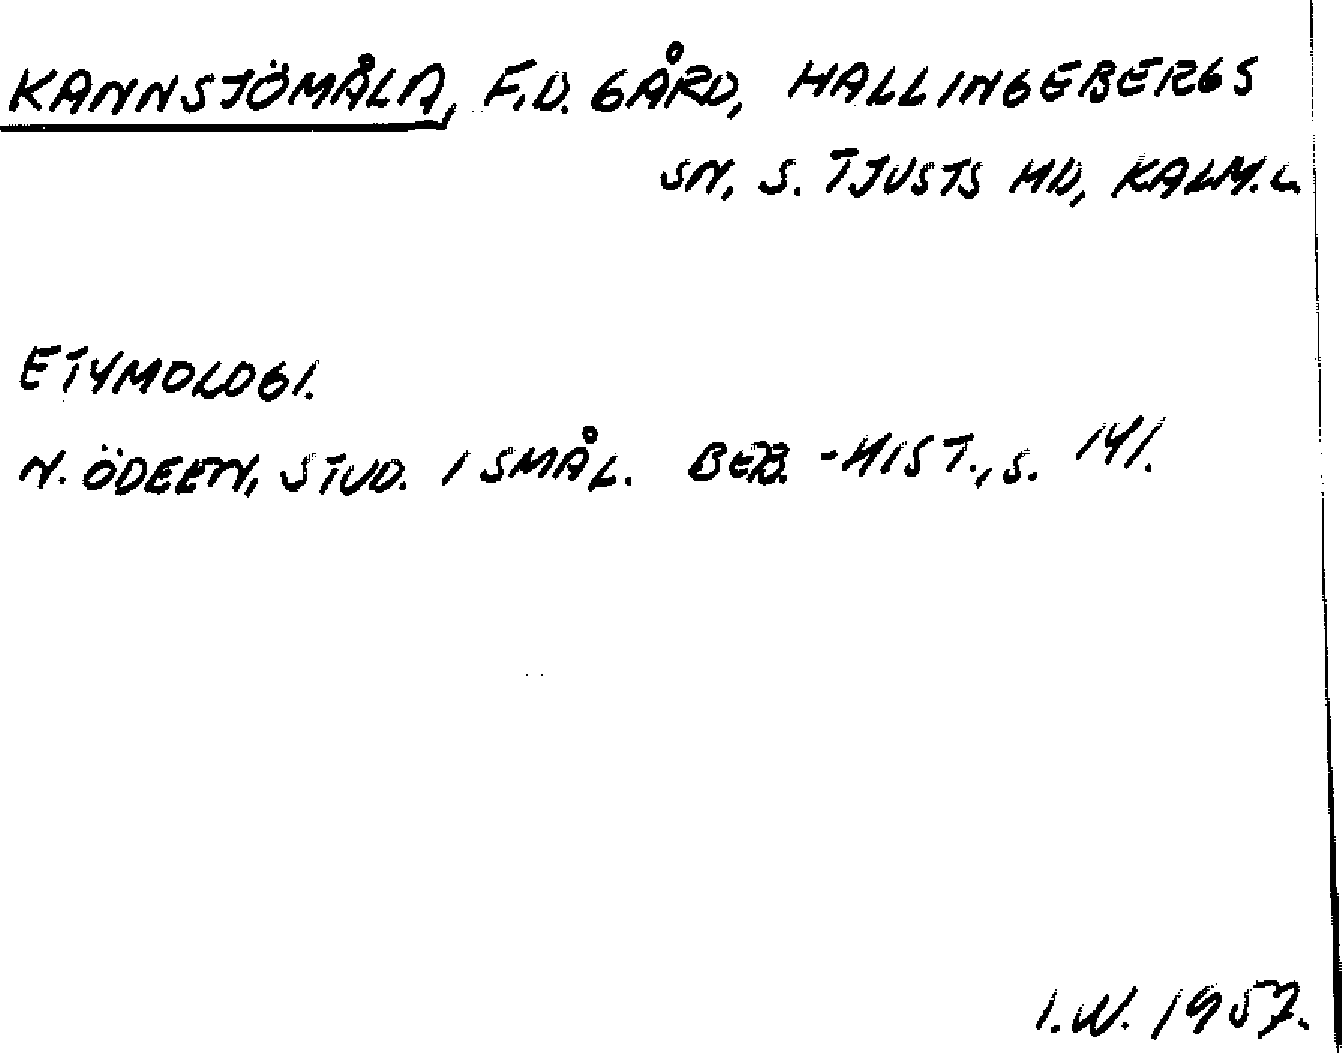 KANNSJÖMÅLA, F.D. GÅRD, HALLINGEBERGS
SN, S. TJUSTS HD, KALM. L.
ETYMOLOGI.
N. ÖDEEN, STUD. I SMÅL. BEB.-HIST., S. 141.
I.W. 1957.